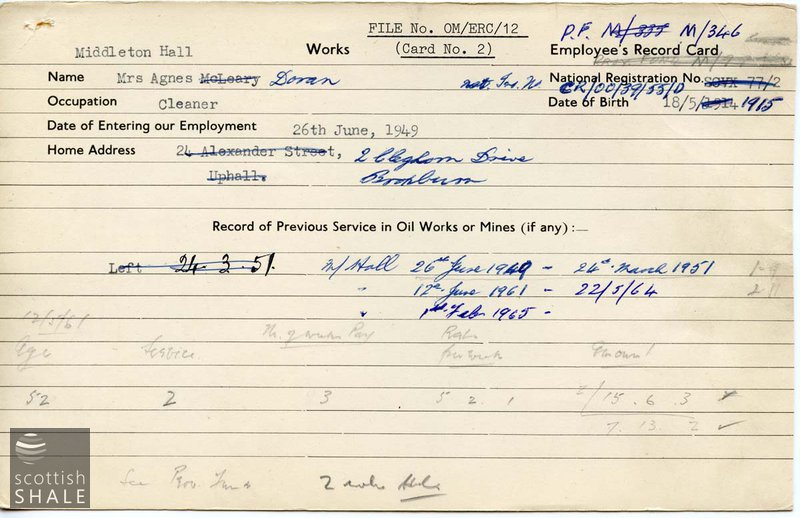 FILE No. OM/ERC/12 P.F. M/346
Middleton Hall Works (Card No. 2) Employee's Record Card
Name Mrs Agnes McLeary Doran Nat. Ins. No. National Registration No. SOVX 77/2
CR/00/39/55/D
Occupation Cleaner Date of Birth 18/5/1914 1915
Date of Entering our Employment 26th June, 1949
Home Address 24 Alexander Street, 2 Cleghorn Drive
Uphall. Broxburn
Record of Previous Service in Oil Works or Mines (if any):—
Left 24.3.51. M/Hall 26th June 1949 - 24th March 1951
" 12th June 1961 - 22/5/64
" 1st Feb 1965 -
Age Service Rate Amount
52 2 3 5 2 . 1 2/15 . 6 . 3
7 . 13 . 2 ✓
See Prov. Fund 2 wks
scottish
SHALE